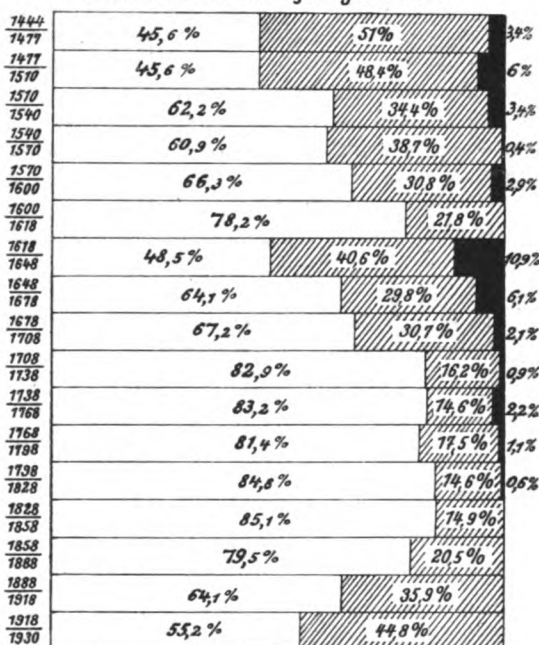 1444 1477 45,6% 51% 3,4%
1477 1510 45,6% 48,4% 6%
1510 1540 62,2% 34,4% 3,4%
1540 1570 60,9% 38,7% 0,4%
1570 1600 66,3% 30,8% 2,9%
1600 1618 78,2% 21,8%
1618 1648 48,5% 40,6% 10,9%
1648 1678 64,1% 29,8% 6,1%
1678 1708 67,2% 30,7% 2,1%
1708 1738 82,9% 16,2% 0,9%
1738 1768 83,2% 14,6% 2,2%
1768 1798 81,4% 17,5% 1,1%
1798 1828 84,8% 14,6% 0,6%
1828 1858 85,1% 14,9%
1858 1888 79,5% 20,5%
1888 1918 64,1% 35,9%
1918 1930 55,2% 44,8%